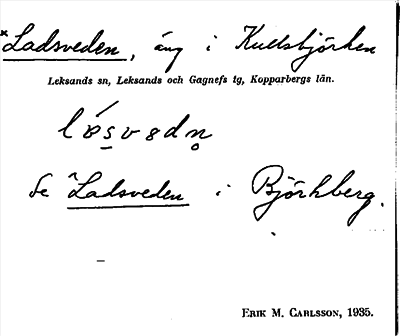 *Ladsveden, äng i Kullsbjörken
Leksands sn, Leksands och Gagnefs tg, Kopparbergs län.
Se ^Ladsveden i Björkberg.
ERIK M. CARLSSON, 1935.